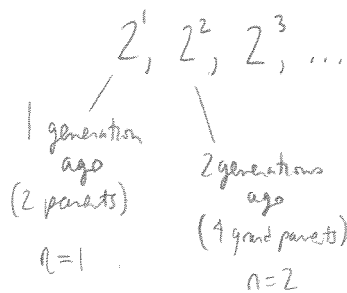 2¹, 2², 2³, ...
1 generation
ago
(2 parents)
n=1
2 generations
ago
(4 grand parents)
n=2